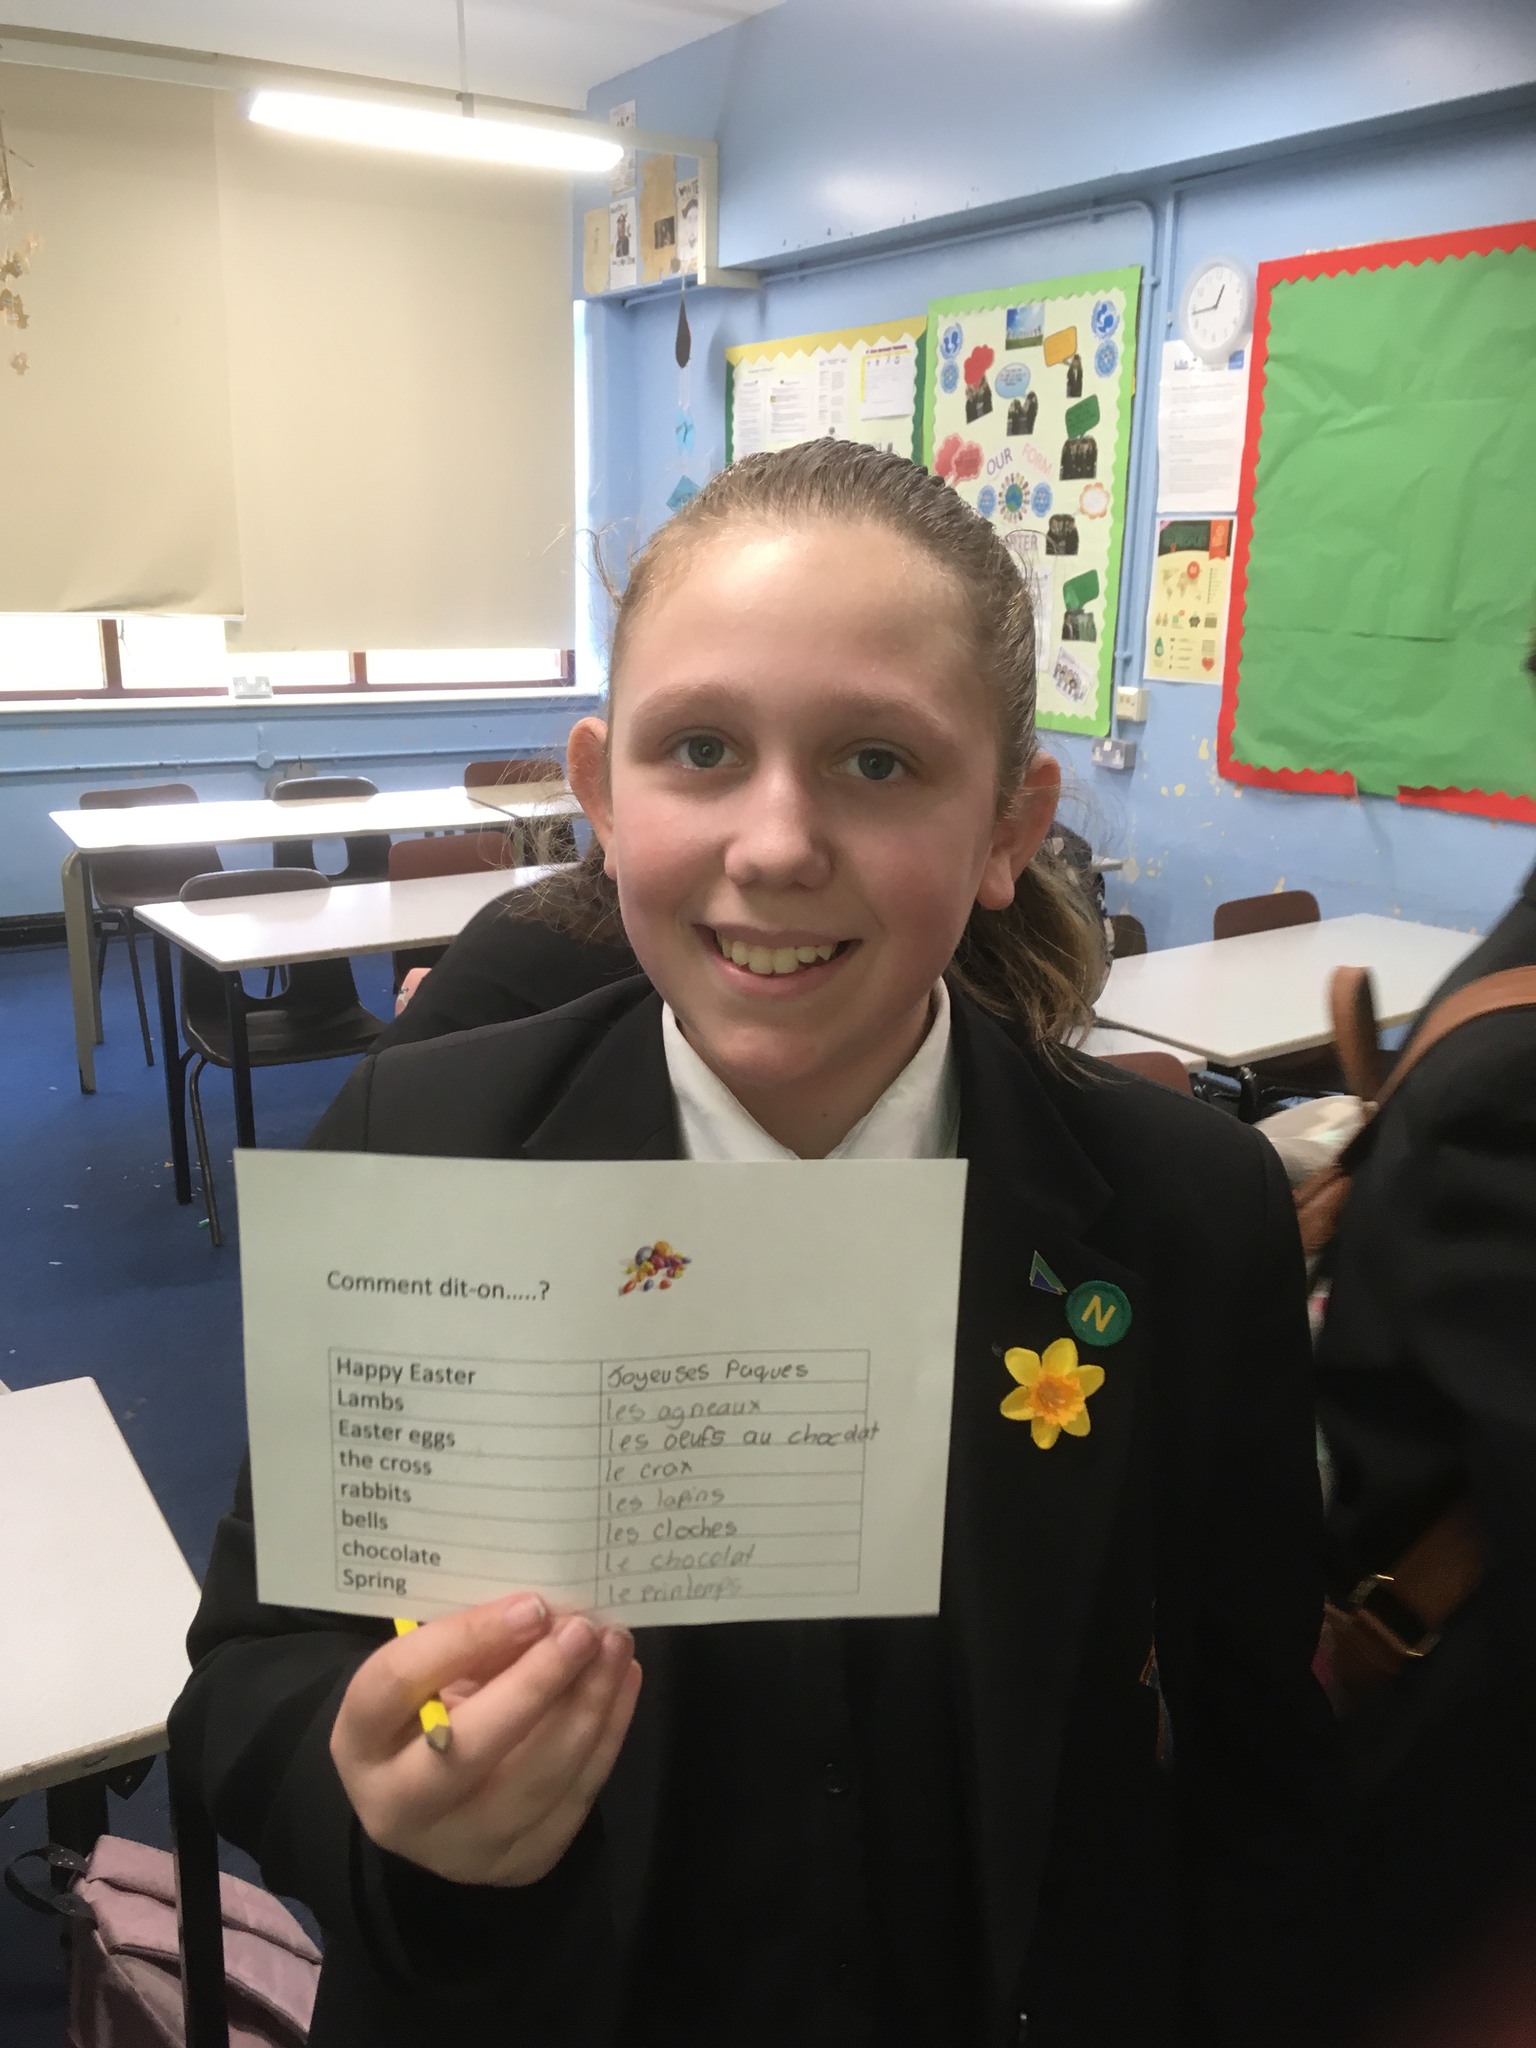 OUR FORM
Comment dit-on.....?
Happy Easter Joyeuses Paques
Lambs les agneaux
Easter eggs les oeufs au chocolat
the cross le croix
rabbits les lapins
bells les cloches
chocolate le chocolat
Spring le printemps
N